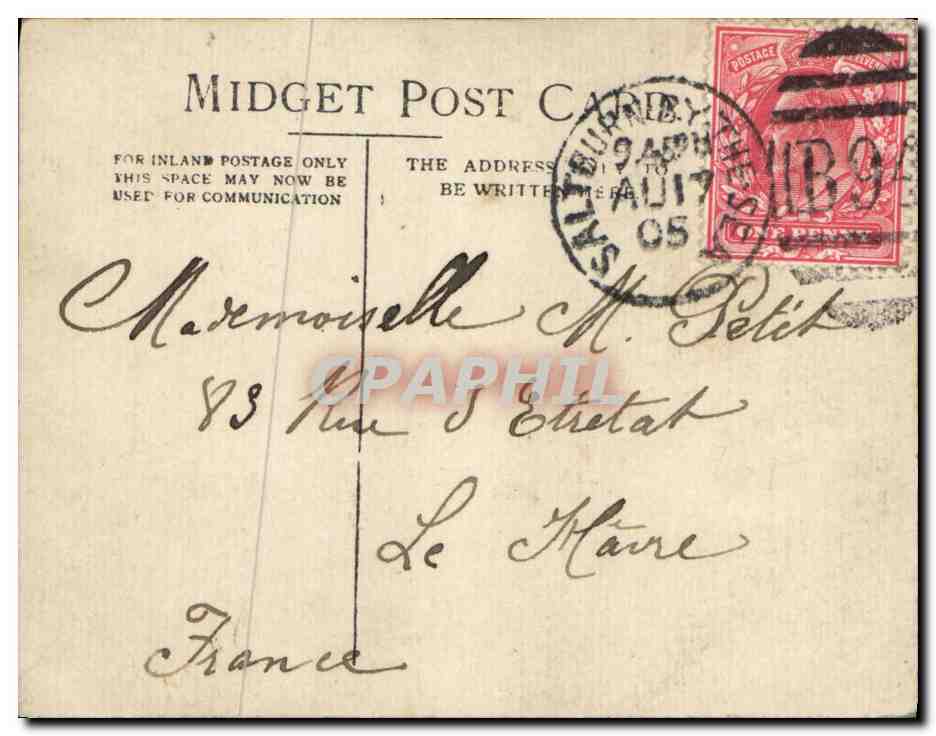 MIDGET POST CARD.
FOR INLAND POSTAGE ONLY
THIS SPACE MAY NOW BE
USED FOR COMMUNICATION
THE ADDRESS ONLY TO
BE WRITTEN HERE
SALTBURN-BY-THE-SEA
AU 17
05
POSTAGE
ONE PENNY
Mademoiselle M. Petit
83 Rue d'Etretat
Le Hâvre
France
CPAPHIL